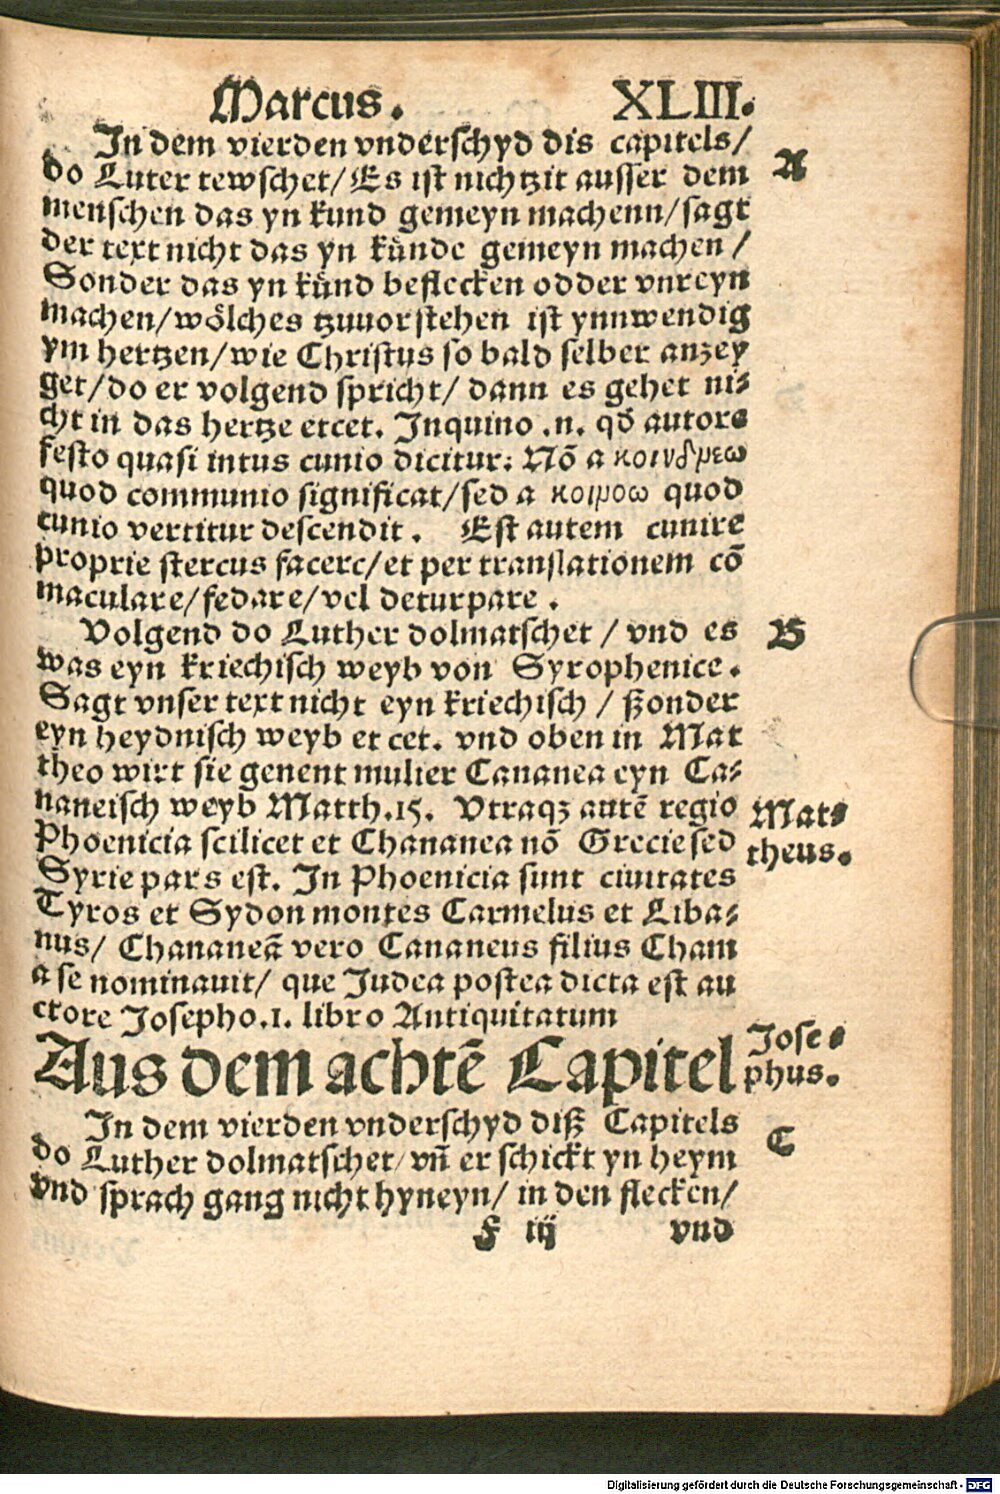 Marcus. XLIII.
In dem vierden vnderschyd dis capitels/
do Luter tewschet/Es ist nichtzit ausser dem
A
menschen das yn kund gemeyn machenn/sagt
der text nicht das yn kůnde gemeyn machen/
Sonder das yn kůnd beflecken odder vnreyn
machen/wôlches tzuuorstehen ist ynnwendig
ym hertzen/wie Christus so bald selber anzey
get/do er volgend spricht/ dann es gehet ni⸗
cht in das hertze etcet. Inquino .n. qđ autore
festo quasi intus cunio dicitur: Nō a
quod communio significat/sed a κοιροω quod
cunio vertitur descendit. Est autem cunire
proprie stercus facere/et per translationem cō
maculare/fedare/vel deturpare.
Volgend do Luther dolmatschet/ vnd es
B
was eyn kriechisch weyb von Syrophenice.
Sagt vnser text nicht eyn kriechisch/ ßonder
eyn heydnisch weyb et cet. vnd oben in Mat
theo wirt sie genent mulier Cananea eyn Ca⸗
naneisch weyb Matth.15. Vtraqꝫ autē regio
Mat⸗
Phoenicia scilicet et Chananea nō Grecie sed
theus.
Syrie pars est. In Phoenicia sunt ciuitates
Tyros et Sydon montes Carmelus et Liba⸗
nus/ Chananeā vero Cananeus filius Cham
a se nominauit/ que Judea postea dicta est au
ctore Josepho.1. libro Antiquitatum
Jose⸗
phus.
Aus dem achtē Capitel
In dem vierden vnderschyd diß Capitels
C
do Luther dolmatschet/vn̄ er schickt yn heym
vnd sprach gang nicht hyneyn/ in den flecken/
F iij vnd
Digitalisierung gefördert durch die Deutsche Forschungsgemeinschaft - DFG